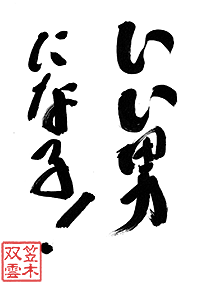 いい男
になる!
笠木
双雲